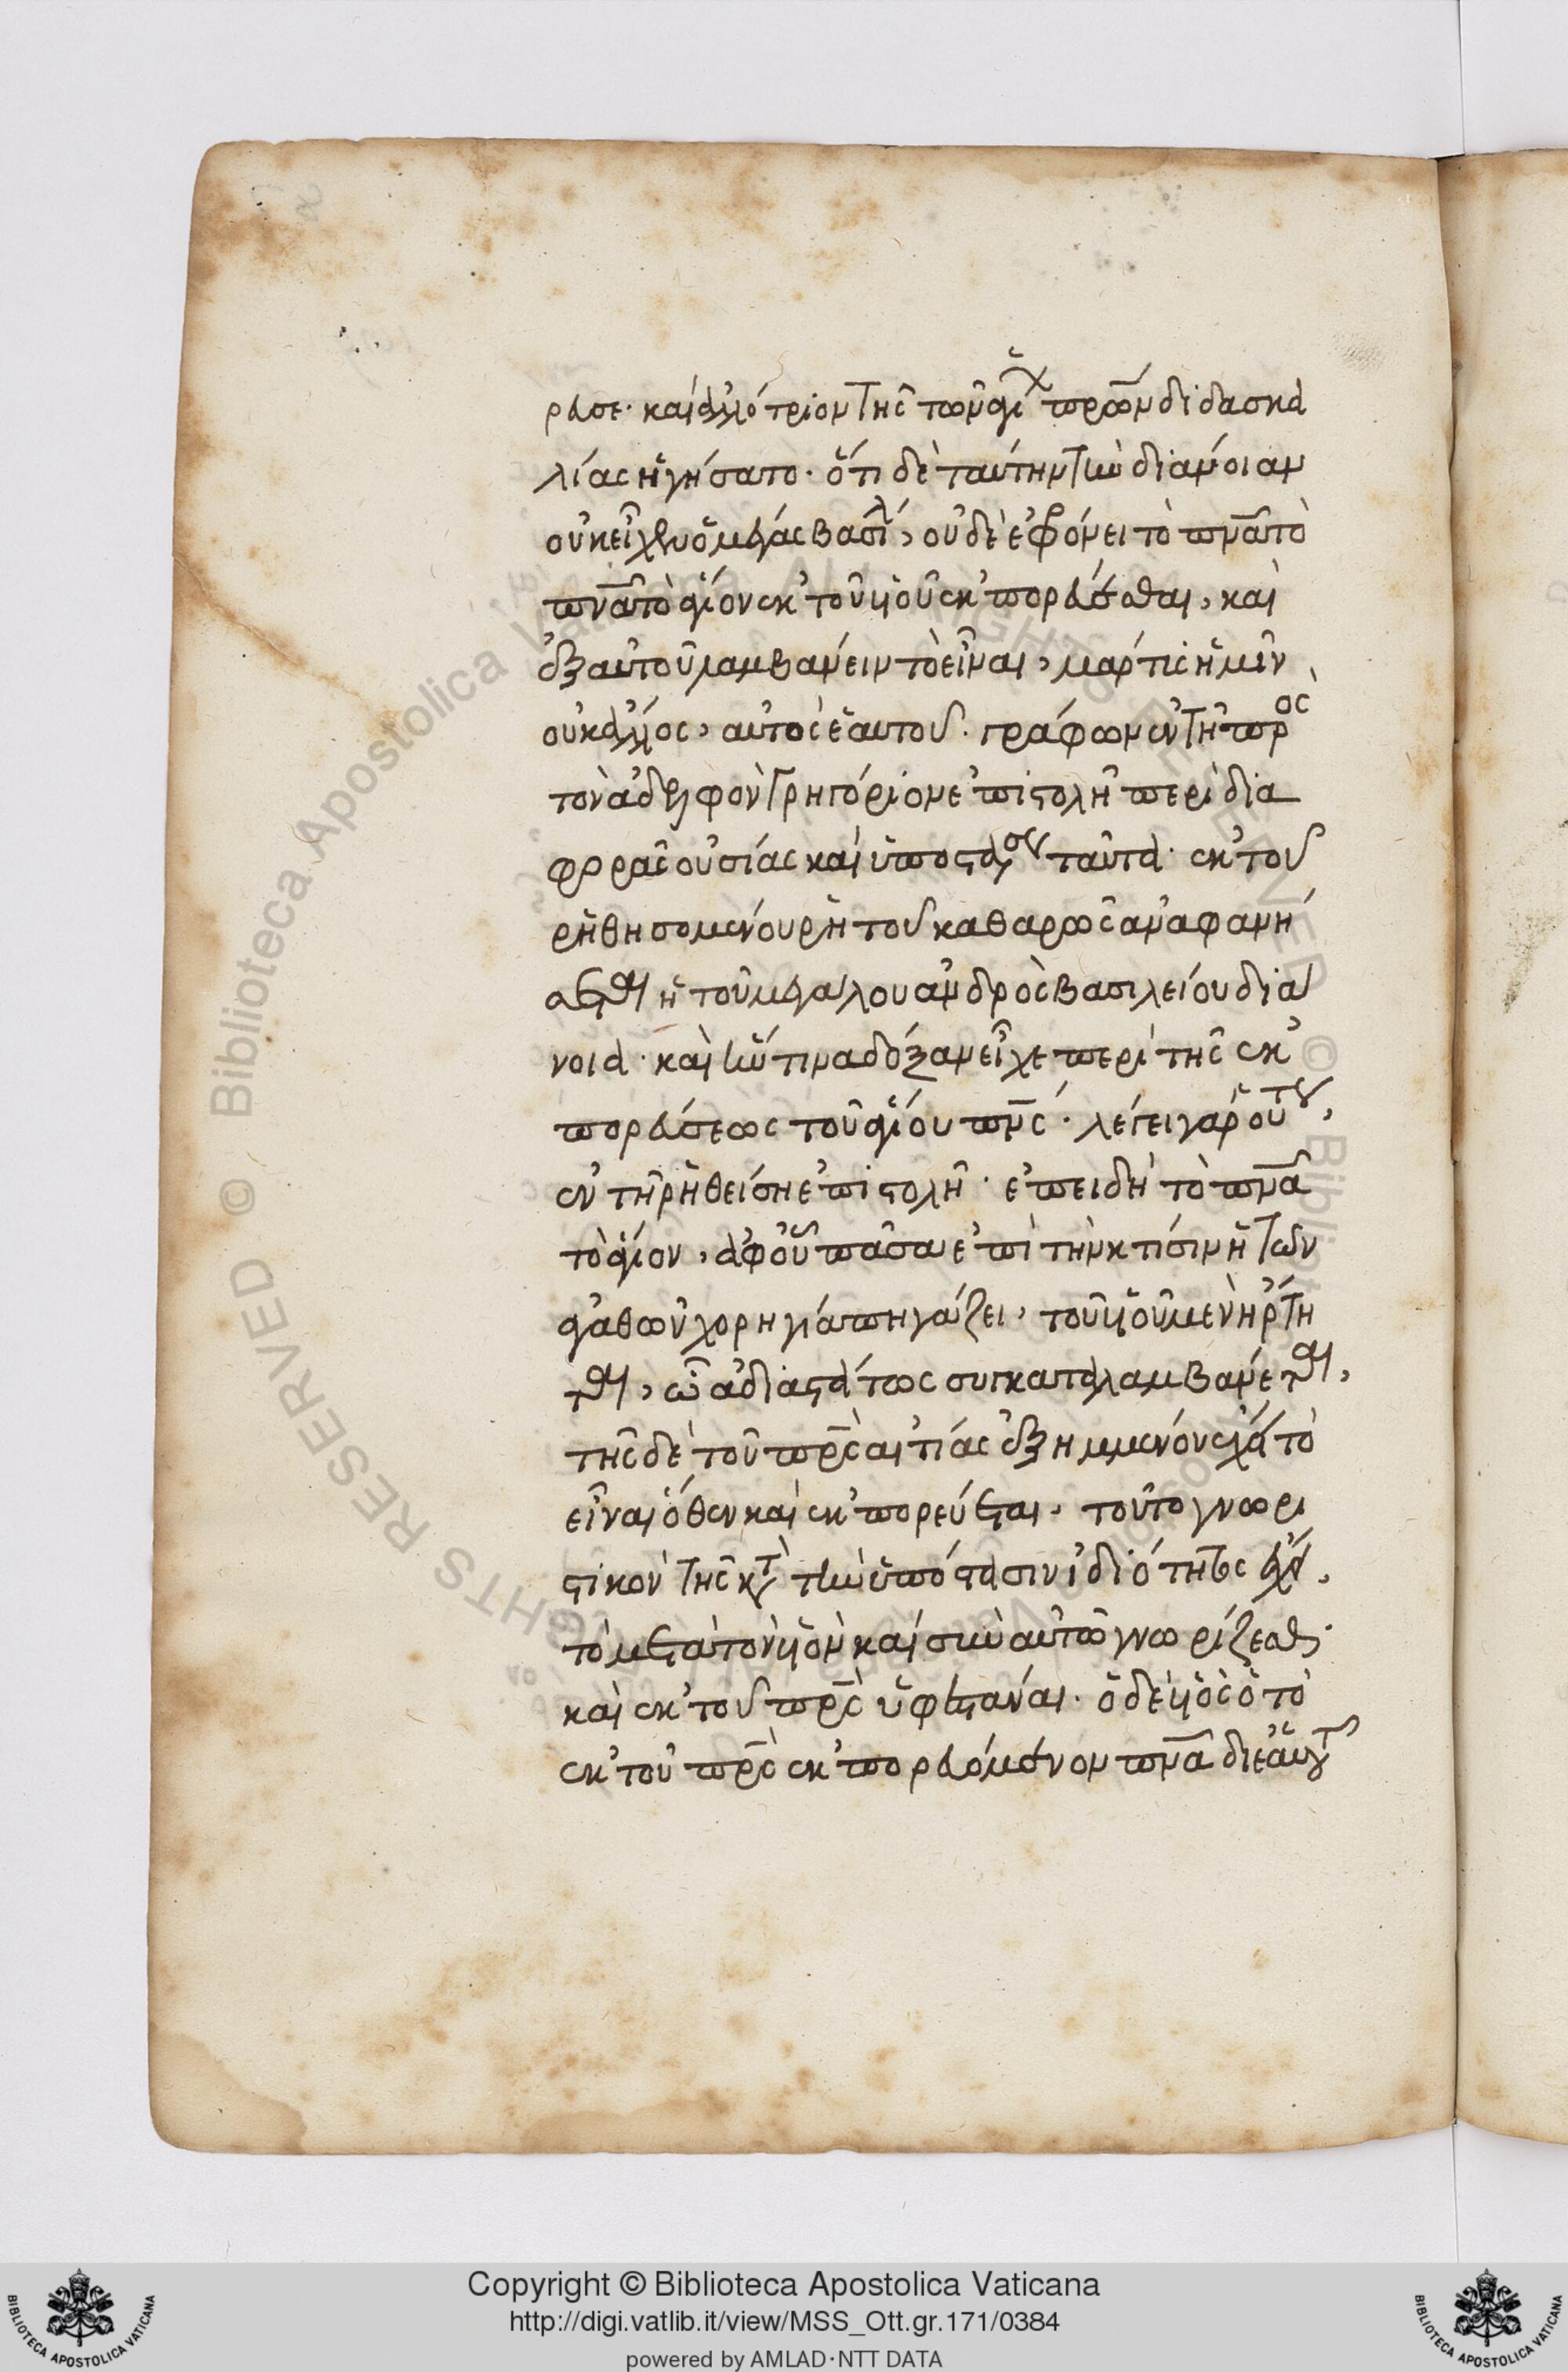 ρευσε· καὶ ἀλλότριον τῆς τῶν ἁγί πρων διδασκα
λίας ἡγήσατο· ὅτι δὲ ταύτην τὴν διάνοιαν
οὐκ εἶχεν ὁ μέγας βασίλ, οὐδὲ ἐφρόνει τὸ πνα τὸ
πνα τὸ ἅγιον ἐκ τοῦ υἱοῦ ἐκπορεύεσθαι, καὶ
ἐξ αὐτοῦ λαμβάνειν τὸ εἶναι, μάρτις ἡμῖν
οὐκ ἄλλος, αὐτὸς ἑαυτοῦ· γράφων ἐν τῇ πρὸς
τὸν ἀδελφὸν γρηγόριον ἐπιστολῇ περὶ δια
φορᾶς οὐσίας καὶ ὑποστάσεως ταῦτα· ἐκ τοῦ
ῥηθησομένου ῥητοῦ καθαρῶς ἀναφανή
σεται ἡ τοῦ μεγάλου ἀνδρὸς βασιλείου διά
νοια· καὶ ἥν τινα δόξαν εἶχε περὶ τῆς ἐκ
πορεύσεως τοῦ ἁγίου πνς· λέγει γὰρ οὕτως,
ἐν τῇ ῥηθείσῃ ἐπιστολῇ· ἐπειδὴ τὸ πνα
τὸ ἅγιον, ἀφ' οὗ πᾶσα ἐπὶ τὴν κτίσιν ἡ τῶν
ἀγαθῶν χορηγία πηγάζει, τοῦ υἱοῦ μὲν ἤρτη
ται, ᾧ ἀδιαστάτως συγκαταλαμβάνεται,
τῆς δὲ τοῦ πρς αἰτίας ἐξημμένον ἔχει τὸ
εἶναι ὅθεν καὶ ἐκπορεύεται, τοῦτο γνωρι
στικὸν τῆς κατὰ τὴν ὑπόστασιν ἰδιότητος ἔχει,
τὸ μετὰ τὸν υἱὸν καὶ σὺν αὐτῷ γνωρίζεσθαι·
καὶ ἐκ τοῦ πρς ὑφεστάναι· ὁ δὲ υἱὸς ὁ τὸ
ἐκ τοῦ πρς ἐκπορευόμενον πνα διεαυτ
Copyright © Biblioteca Apostolica Vaticana
http://digi.vatlib.it/view/MSS_Ott.gr.171/0384
powered by AMLAD·NTT DATA